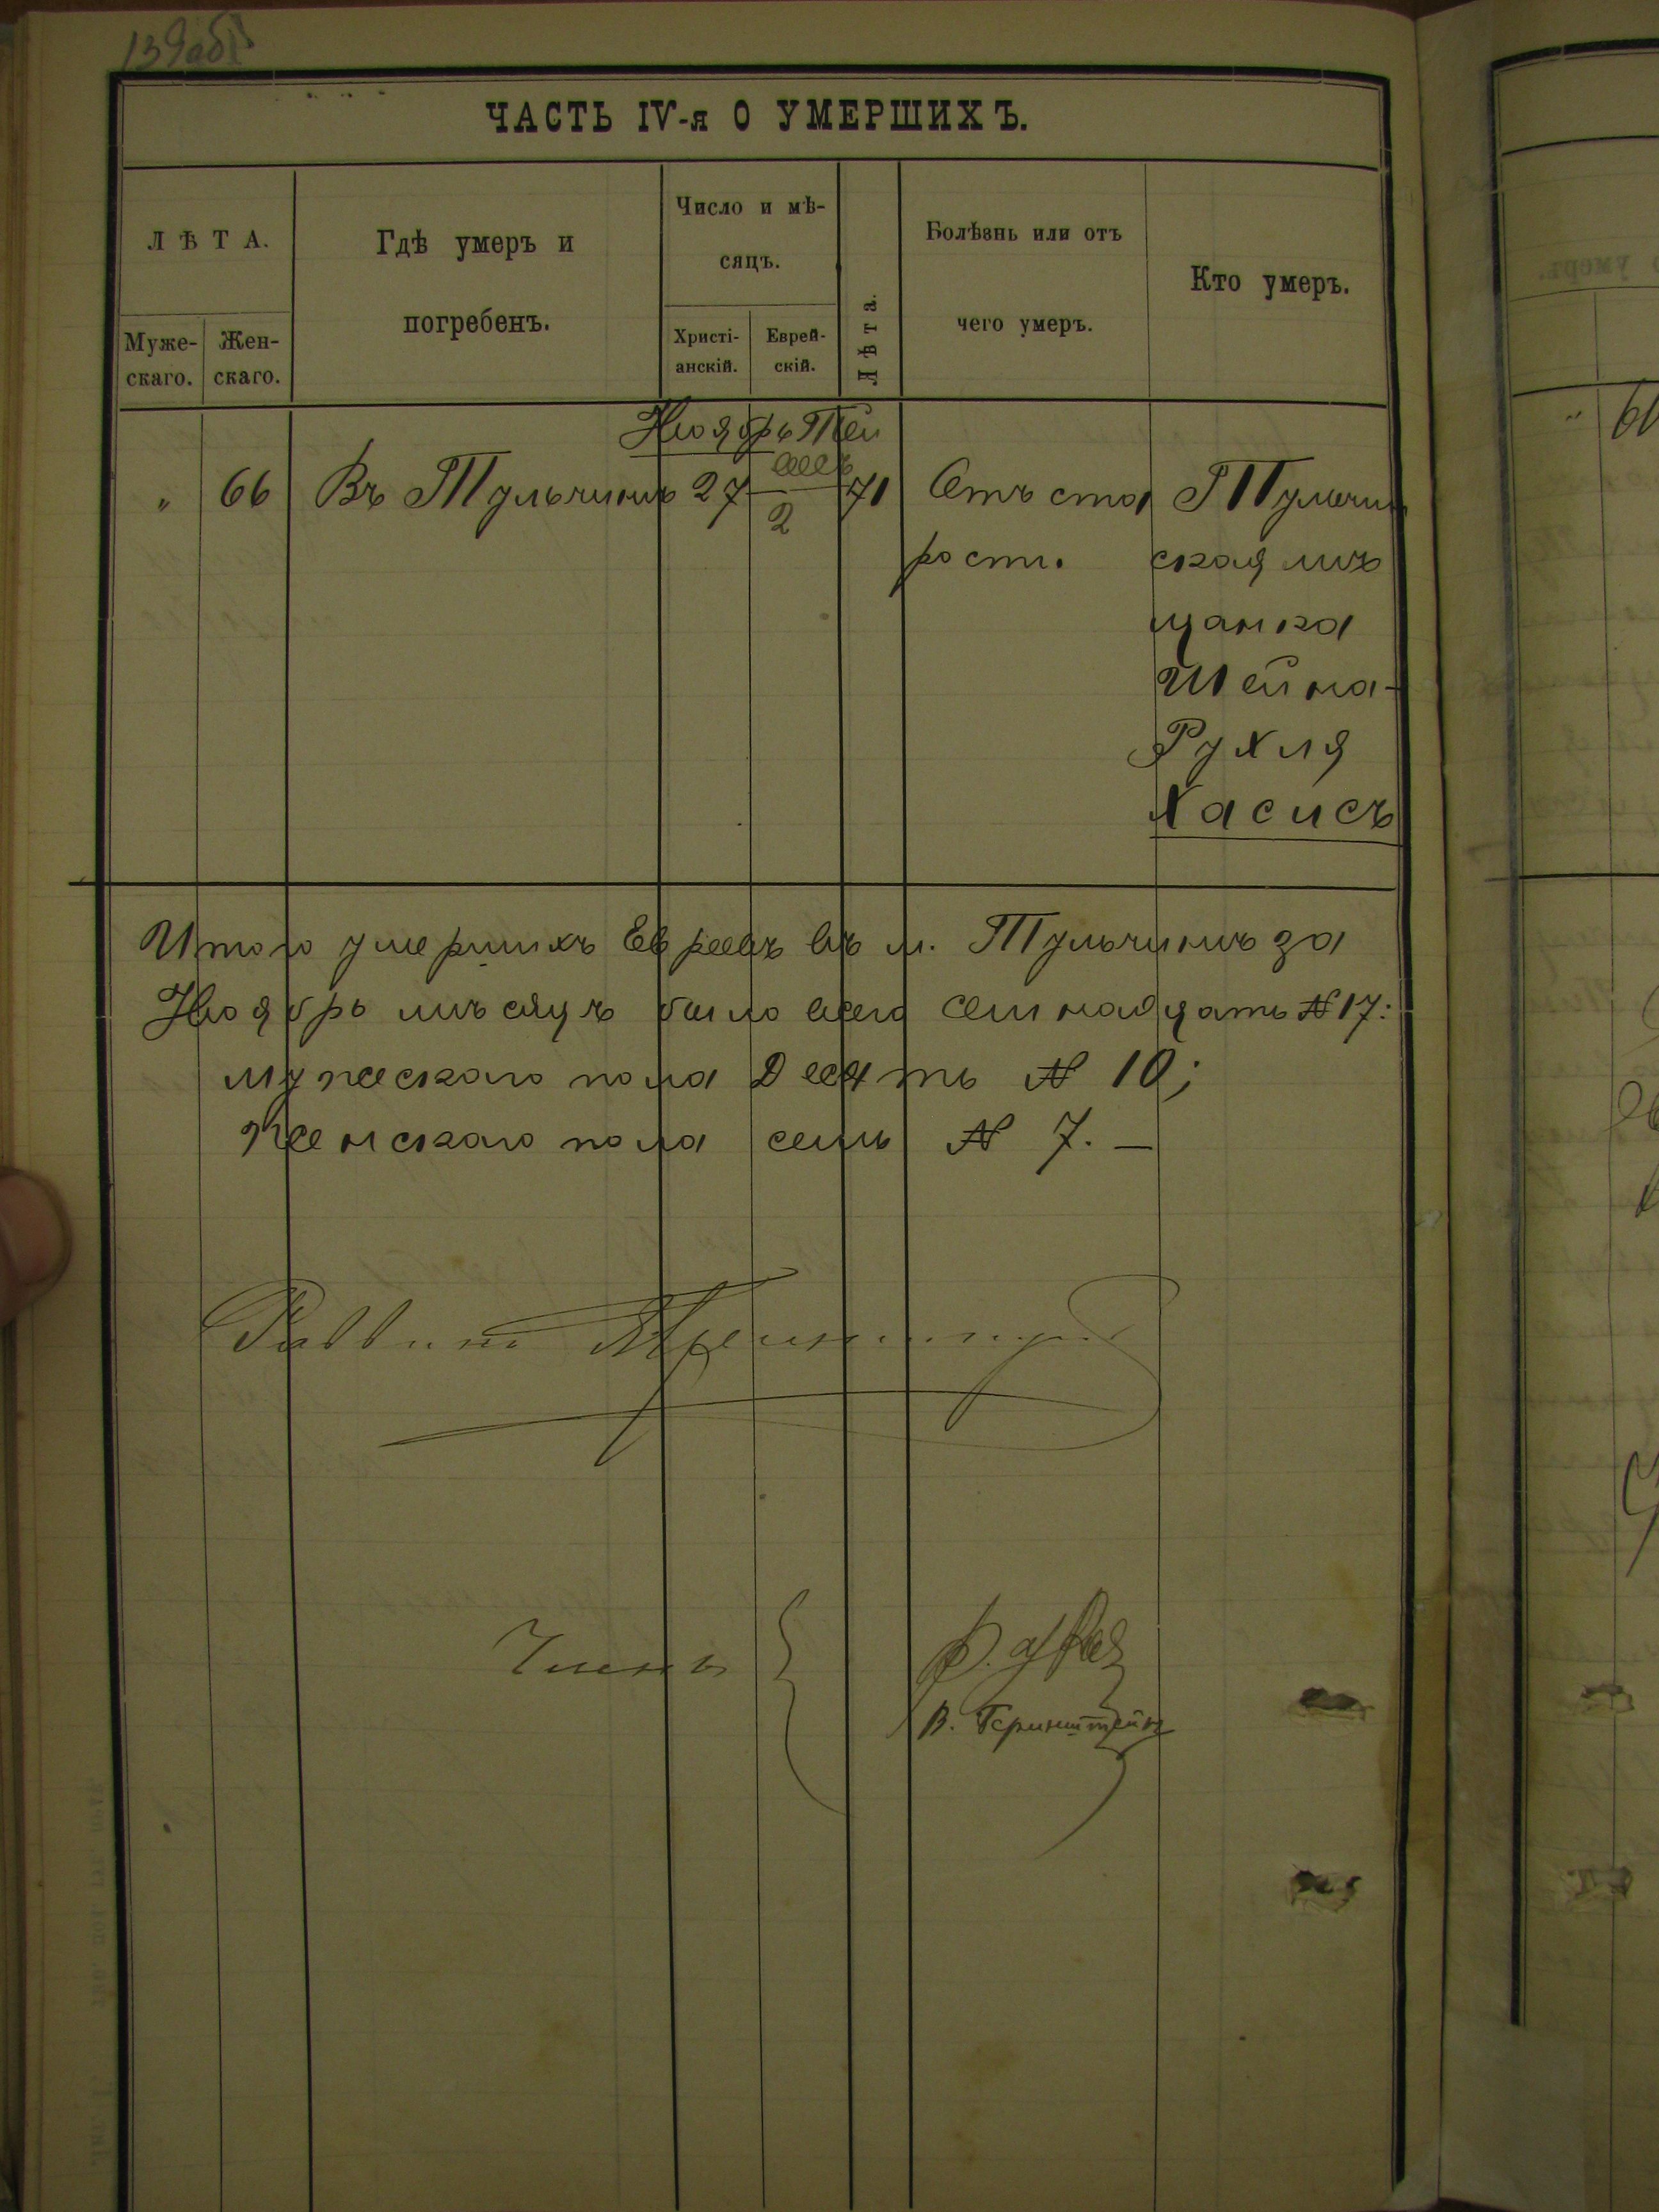 139об
ЧАСТЬ IV-я О УМЕРШИХЪ.
ЛѢТА.
Муже-
скаго.
Жен-
скаго.
Гдѣ умеръ и
погребенъ.
Число и мѣ-
сяцъ.
Христі-
анскій.
Еврей-
скій.
Лѣта.
Болѣзнь или отъ
чего умеръ.
Кто умеръ.
Ноябрь Тей
" 66 Въ Тульчинѣ 27 2 71 Отъ ста Тульчин
рости. ская мѣ
щанка
Шейна-
Рухля
Хасисъ
Итого умершихъ Евреевъ въ м. Тульчинѣ за
Ноябрь мѣсяцъ было всего семнадцать № 17:
мужескаго пола Десять № 10;
женскаго пола семь № 7. —
Раввинъ
Члены
В. Геринштейнъ
" 66